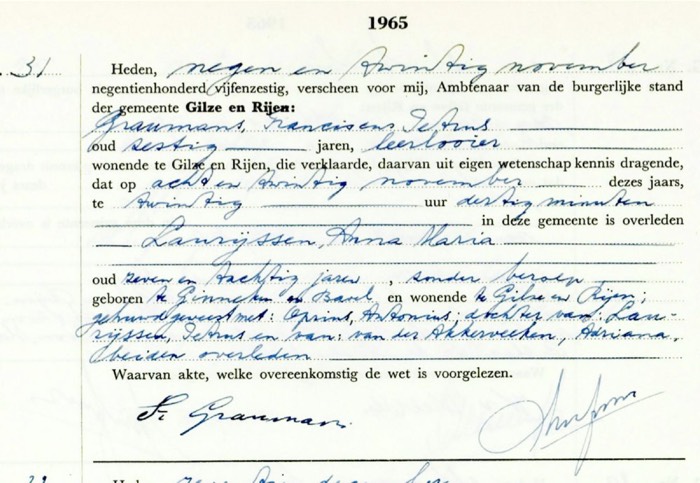 1965
31 Heden, negen en twintig november
negentienhonderd vijfenzestig, verscheen voor mij, Ambtenaar van de burgerlijke stand
der gemeente Gilze en Rijen:
Graumans, Franciscus Petrus
oud zestig jaren, leerlooier
wonende te Gilze en Rijen, die verklaarde, daarvan uit eigen wetenschap kennis dragende,
dat op acht en twintig november dezes jaars,
te twintig uur dertig minuten
in deze gemeente is overleden
Laurijssen, Anna Maria
oud zeven en tachtig jaren, zonder beroep
geboren te Ginneken en Bavel, en wonende te Gilze en Rijen;
gehuwd geweest met: Oprins, Antonius; dochter van: Lau-
rijssen, Petrus en van: van der Akkerveeken, Adriana,
beiden overleden
Waarvan akte, welke overeenkomstig de wet is voorgelezen.
Fr Graumans